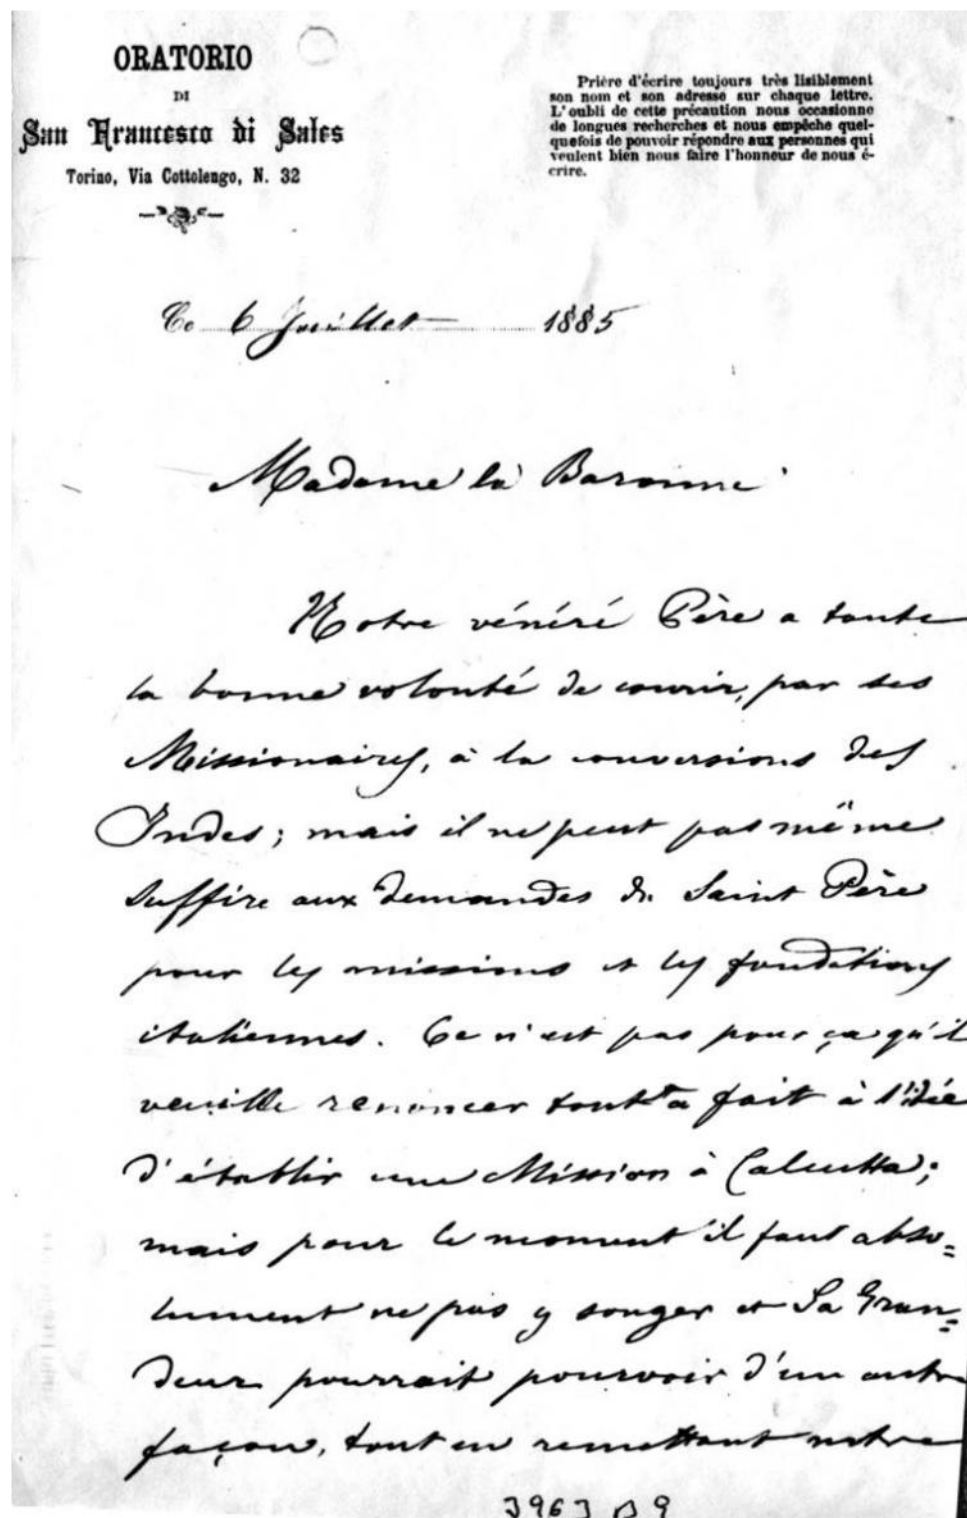 ORATORIO
DI
San Francesco di Sales
Torino, Via Cottolengo, N. 32
Prière d'écrire toujours très lisiblement
son nom et son adresse sur chaque lettre.
L'oubli de cette précaution nous occasionne
de longues recherches et nous empêche quel-
quefois de pouvoir répondre aux personnes qui
veulent bien nous faire l'honneur de nous é-
crire.
Ce 6 Juillet 1885
Madame la Baronne
Notre vénéré Père a toute
la bonne volonté de courir, par ses
Missionaires, à la conversions des
Indes; mais il ne peut pas même
suffire aux demandes du Saint Père
pour les missions et les fondations
italiennes. Ce n'est pas pour ça qu'il
veuille renoncer tout à fait à l'idée
d'établir une Mission à Calcutta;
mais pour le moment il faut abso=
lument ne pas y songer et Sa Gran=
deur pourrait pourvoir d'un autre
façon, tout en remettant notre
3963 B 9